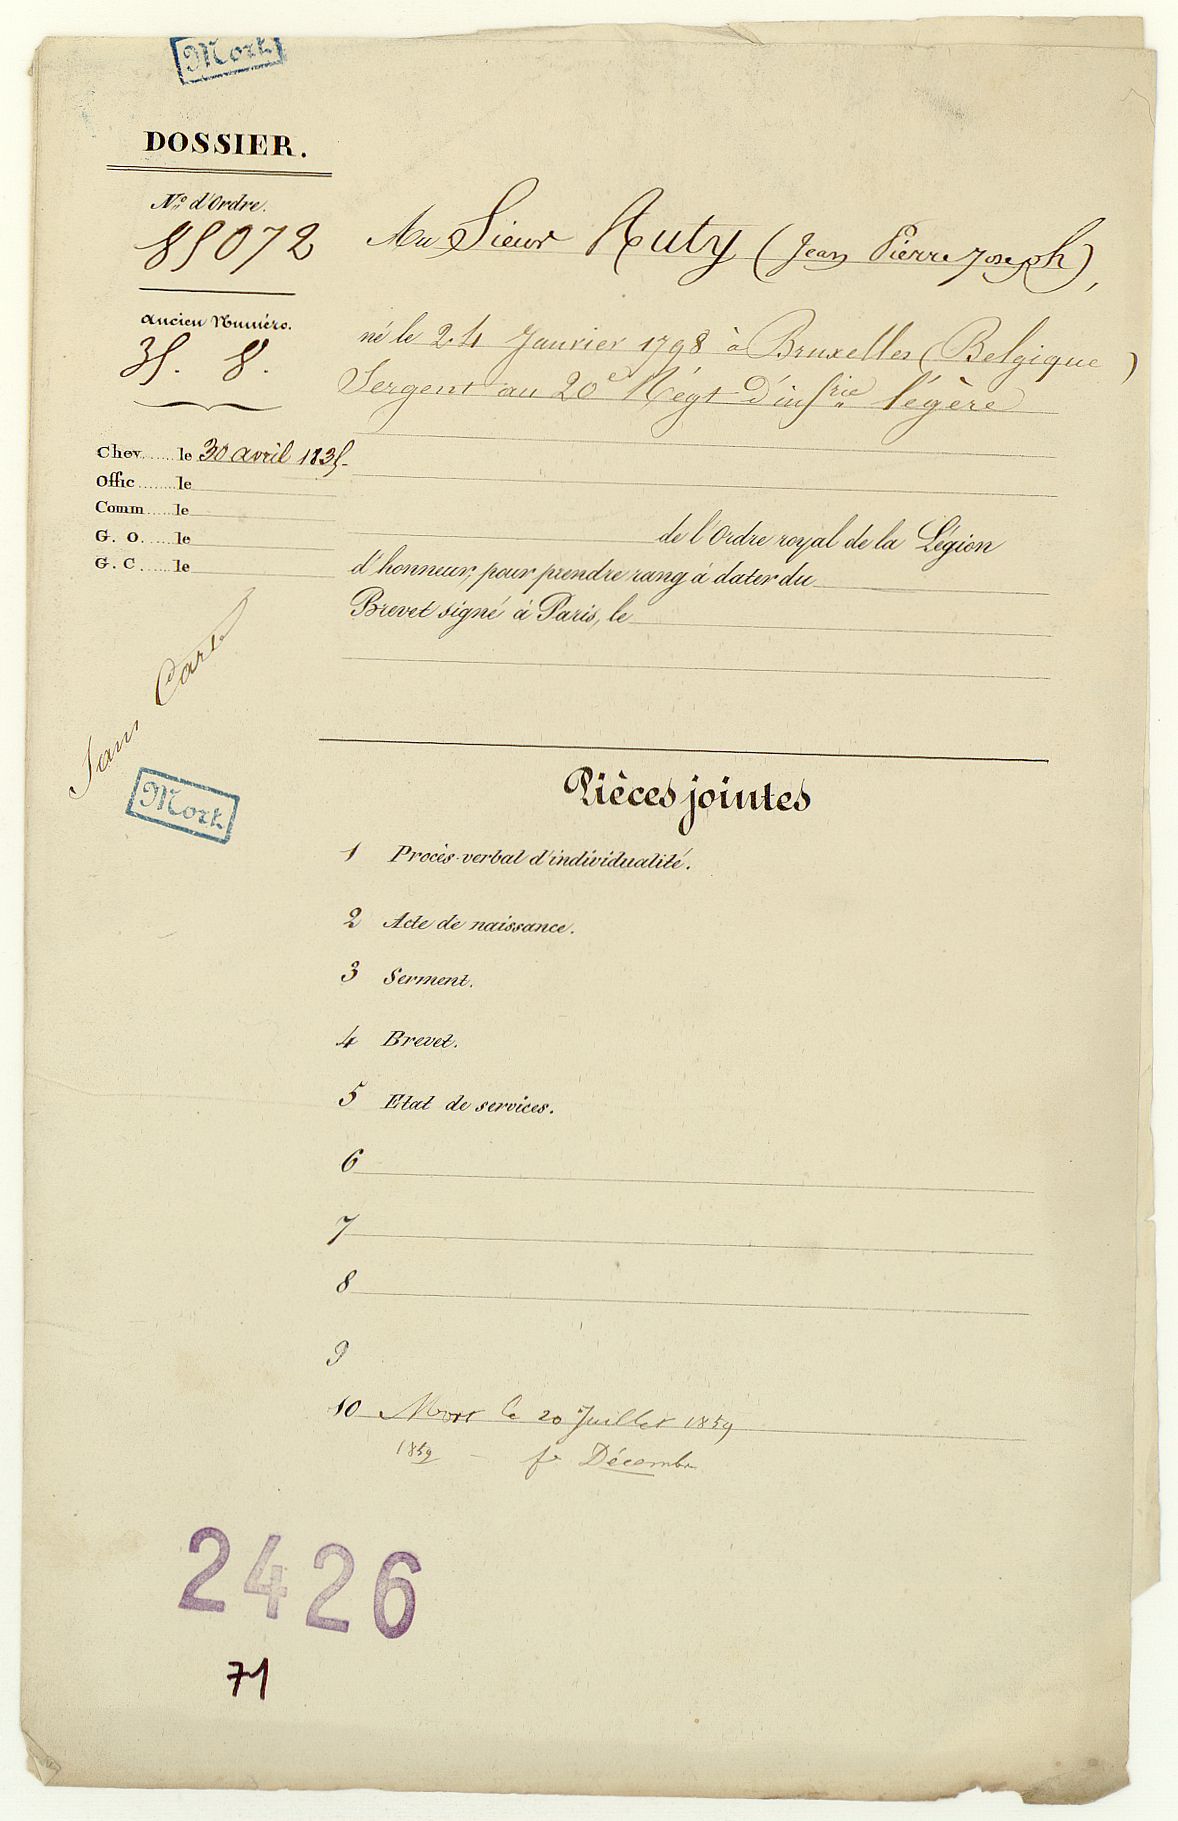 Mort
DOSSIER.
No d'Ordre.
85072
Ancien Numéro.
35. 8.
Chev...... le 30 avril 1835.
Offic....... le
Comm..... le
G. O. .... le
G. C. .... le
Sans Carte
Mort
Au Sieur Huty (Jean Pierre Joseph),
né le 24 Janvier 1798 à Bruxelles (Belgique)
Sergent au 20e Régt d'infrie légère
de l'Ordre royal de la Légion
d'honneur, pour prendre rang à dater du
Brevet signé à Paris, le
Pièces jointes
1 Procès-verbal d'individualité.
2 Acte de naissance.
3 Serment.
4 Brevet.
5 Etat de services.
6
7
8
9
10 Mort le 20 Juillet 1859
1859 - Décembre
2426
71